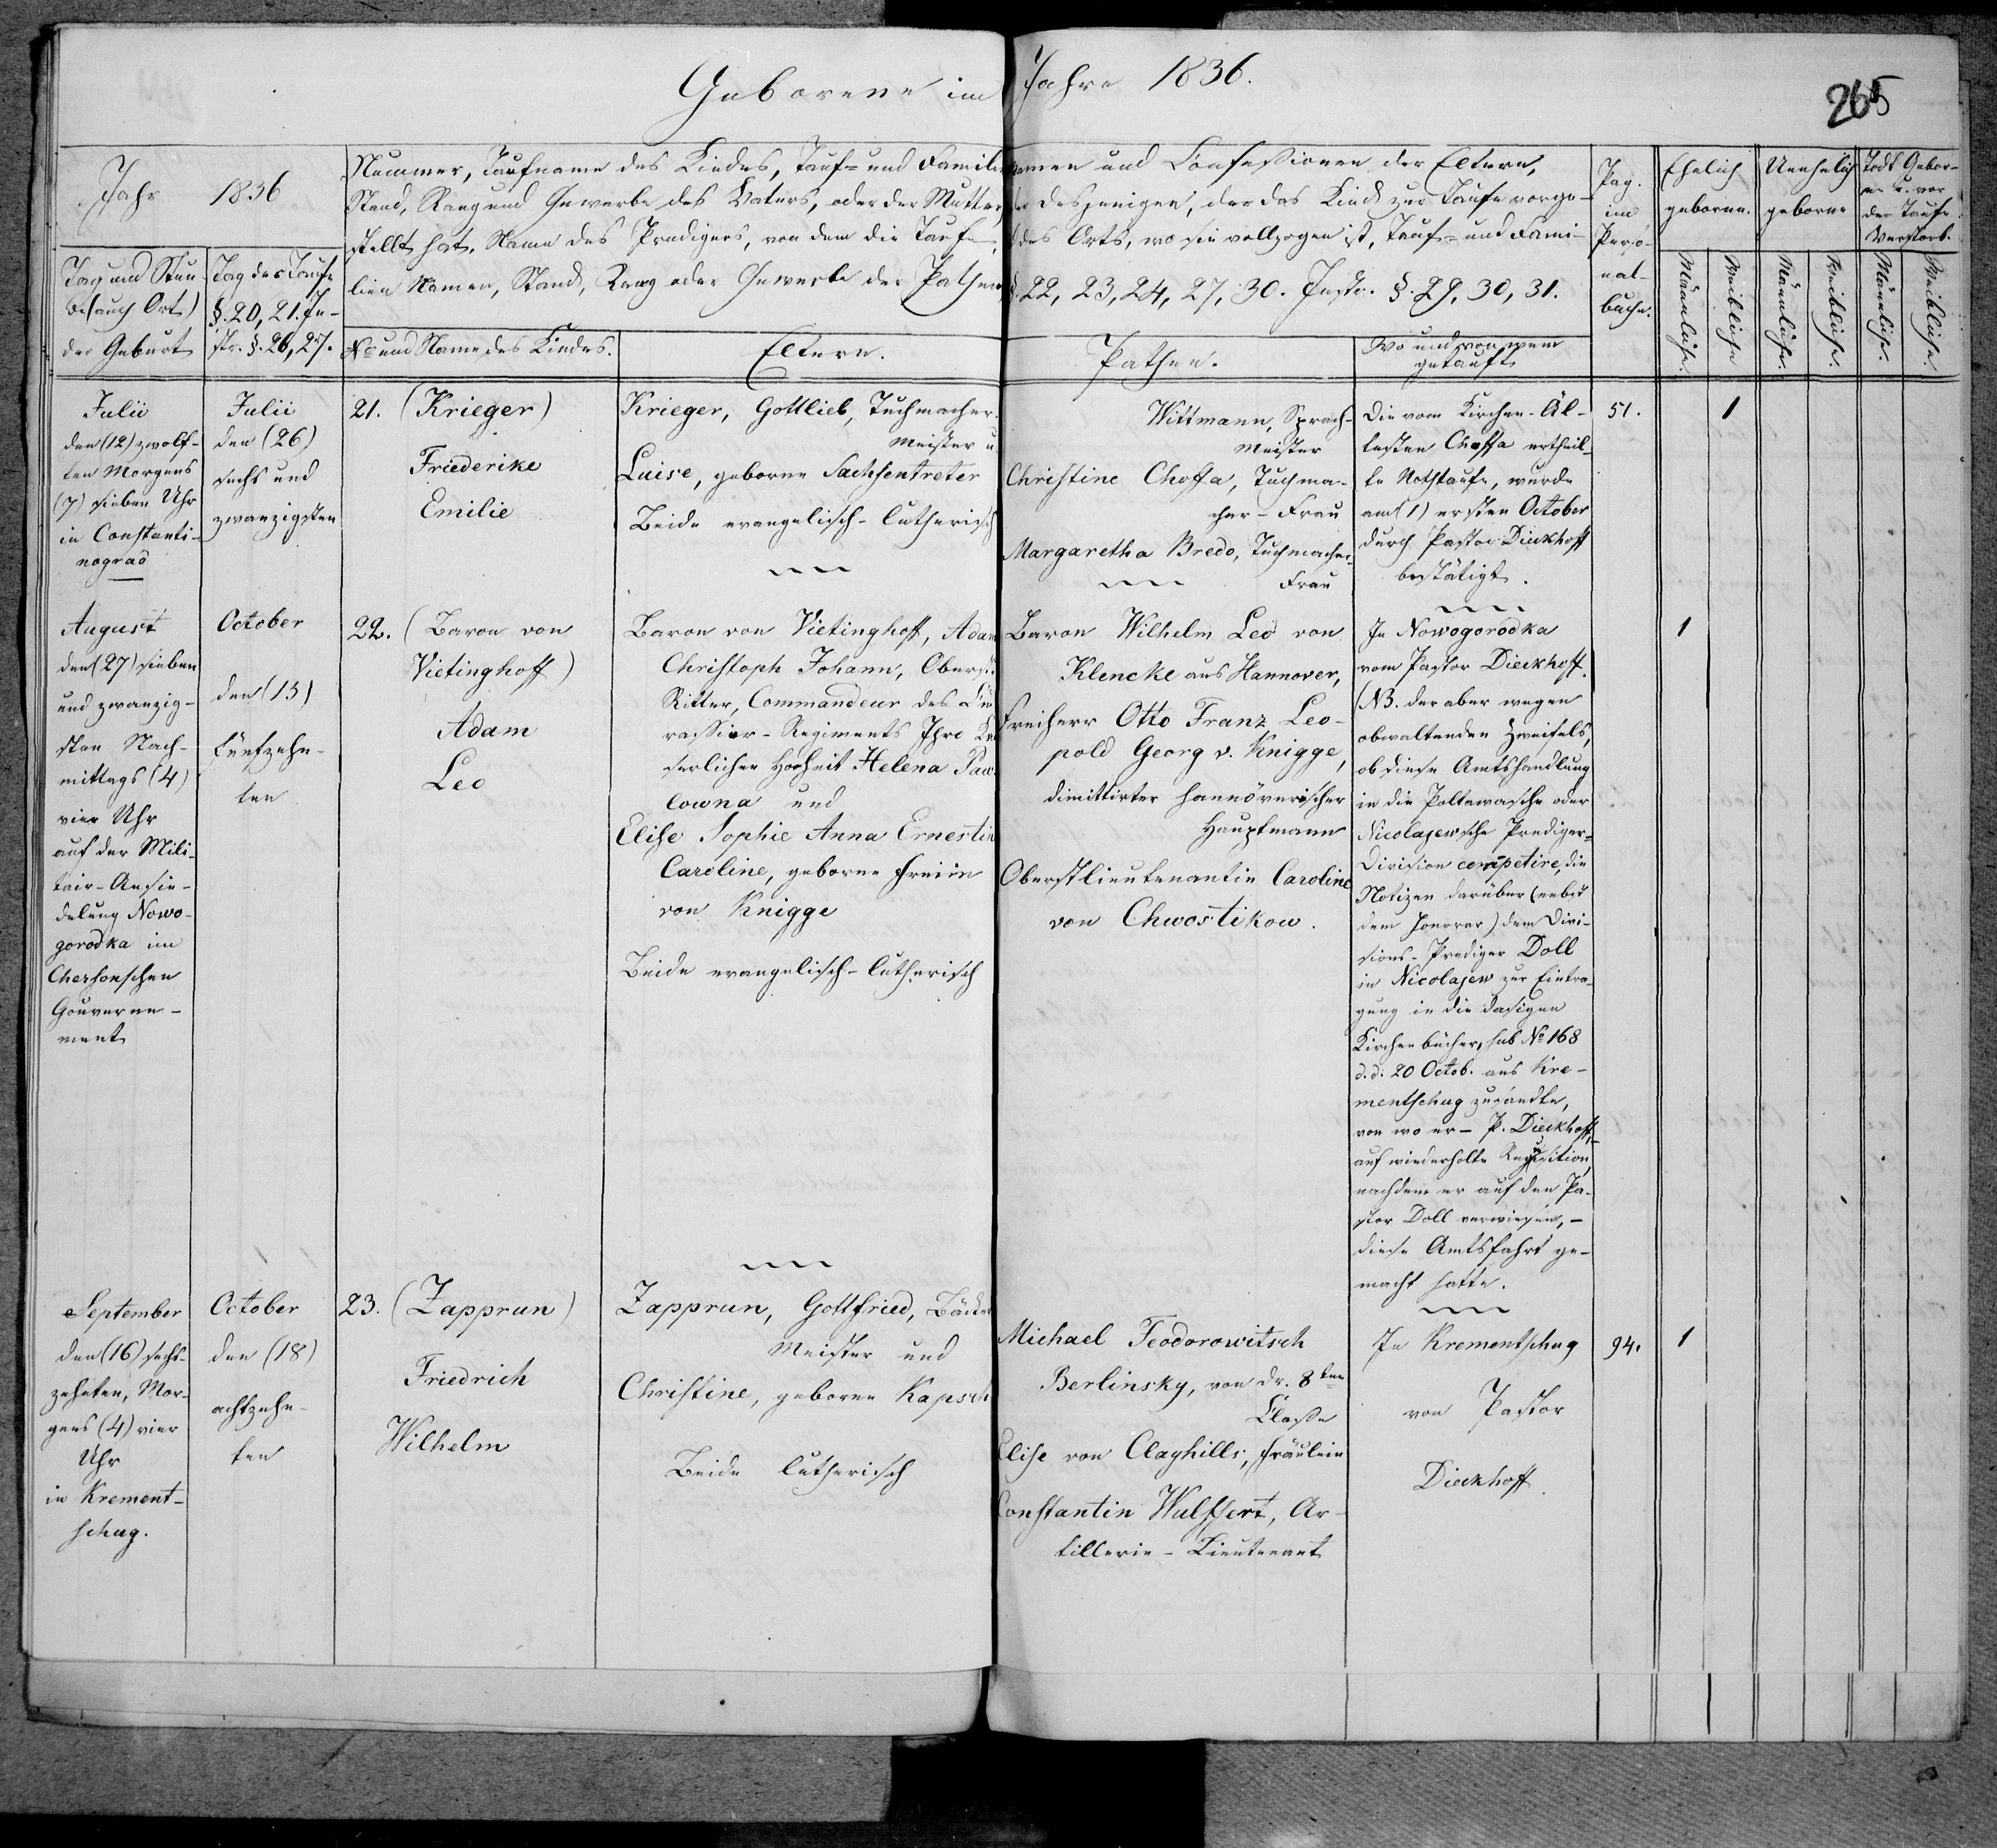 Geborene im Jahre 1836.
265
Jahr 1836
Tag und Stun
de (auch Ort)
der Geburt
Tag der Taufe
§. 20, 21. In-
str. §. 26, 27.
Nummer, Taufname des Kindes, Tauf- und Familien Namen und Confessionen der Eltern,
Stand, Rang und Gewerbe des Vaters, oder der Mutter, oder desjenigen, der das Kind zur Taufe vorge-
stellt hat. Name des Predigers, von dem die Taufe, des Orts, wo sie vollzogen ist, Tauf- und Fami-
lien Namen, Stand, Rang oder Gewerbe der Pathen §. 22, 23, 24, 27, 30. Instr. §. 29, 30, 31.
No und Name des Kindes.
Eltern.
Pathen.
Wo und von wem
getauft
Pag.
im
Perso-
nal-
buche.
Ehelich
geborne.
Unehelich
geborne
Todt Gebor-
ne u. vor
der Taufe
Verstorb.
Männliche.
Weibliche
Männliche.
Weibliche.
Männliche.
Weibliche.
Julii
den (12) zwölf-
ten Morgens
(7) sieben Uhr
in Constanti-
nograd
Julii
den (26)
sechs und
zwanzigsten
21. (Krieger)
Friederike
Emilie
Krieger, Gottlieb, Tuchmacher-
Meister u
Luise, geborne Sachsentreter
Beide evangelisch-lutherisch
Wittmann, Sprach-
Meister
Christine Choffa, Tuchma-
cher-Frau
Margaretha Bredo, Tuchmacher-
Frau
Die vom Kirchen-Äl-
testen Choffa ertheil-
te Nothtaufe, wurde
am (1) ersten October
durch Pastor Dieckhoff
bestätigt.
51.
1
August
den (27) sieben
und zwanzig-
sten Nach-
mittags (4)
vier Uhr
auf der Mili-
tair-Ansie-
delung Nowo-
gorodka im
Chersonschen
Gouverne-
ment
October
den (15)
fünfzehn-
ten
22. (Baron von
Vietinghoff)
Adam
Leo
Baron von Vietinghoff, Adam
Christoph Johann, Oberst
Ritter, Commandeur des Kü
rassier-Regiments Ihro Kai
serlichen Hoheit Helena Paw
lowna und
Elise Sophie Anna Ernestin
Caroline, geborne Freiin
von Knigge
Beide evangelisch-lutherisch
Baron Wilhelm Leo von
Klencke aus Hannover,
Freiherr Otto Franz Leo-
pold Georg v. Knigge,
dimittirter hannöverischer
Hauptmann
Oberstlieutenantin Caroline
von Chwostikow.
In Nowogorodka
vom Pastor Dieckhoff.
(NB. der aber wegen
obwaltenden Zweifels,
ob diese Amtshandlung
in die Poltawasche oder
Nicolajewsche Prediger-
Division competire, die
Notizen darüber (nebst
dem Honorar) dem Divi-
sions-Prediger Doll
in Nicolajew zur Eintra-
gung in die dasigen
Kirchenbücher, sub No 168
d.d. 20 Octob. aus Kre-
mentschug zusandte,
von wo er - P. Dieckhoff,-
auf wiederholte Requisition,
nachdem er auf den Pa-
stor Doll verwiesen, -
diese Amtsfahrt ge-
macht hatte.
1
September
den (16) sechs-
zehnten, Mor-
gens (4) vier
Uhr
in Krement-
schug.
October
den (18)
achtzehn-
ten
23. (Zapprun)
Friedrich
Wilhelm
Zapprun, Gottfried, Bäcker
Meister und
Christine, geborne Kapsch
Beide lutherisch
Michael Feodorowitsch
Berlinsky, von dr. 8ten
Classe
Elise von Clayhills, Fräulein
Constantin Wulffert, Ar-
tillerie-Lieutenant
In Krementschug
von Pastor
Dieckhoff.
94.
1